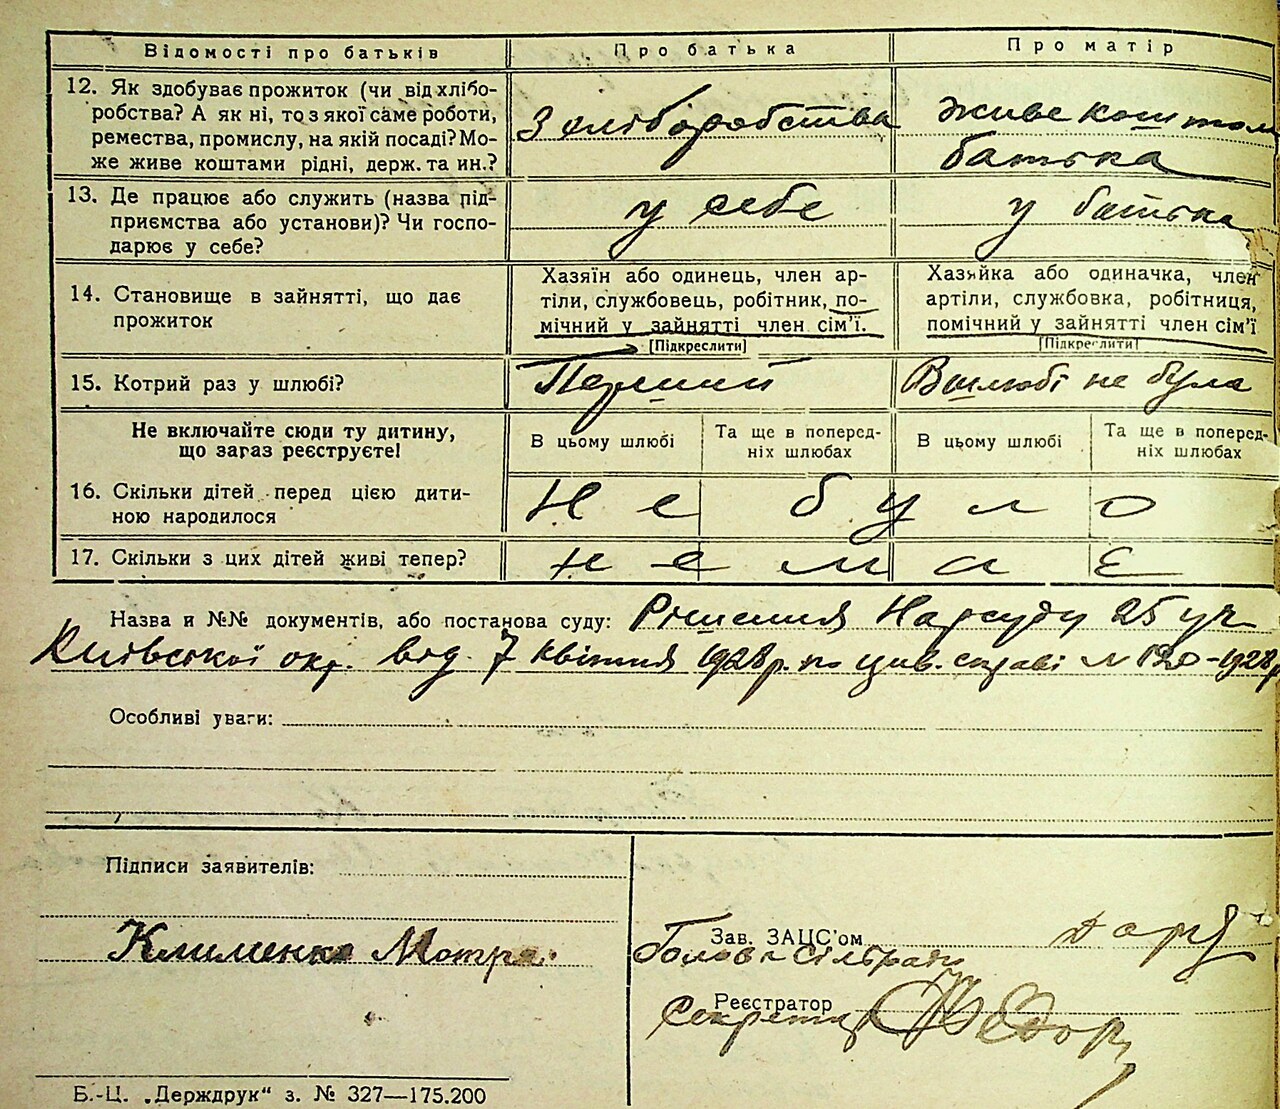 Відомості про батьків Про батька Про матір
12. Як здобуває прожиток (чи від хлібо-
робства? А як ні, то з якої саме роботи,
ремества, промислу, на якій посаді? Мо-
же живе коштами рідні, держ. та ин.?
З хліборобства
Живе коштом
батька
13. Де працює або служить (назва під-
приємства або установи)? Чи госпо-
дарює у себе?
у себе
у батька
14. Становище в зайнятті, що дає
прожиток
Хазяїн або одинець, член ар-
тіли, службовець, робітник, по-
мічний у зайнятті член сім'ї.
[Підкреслити]
Хазяйка або одиначка, член
артіли, службовка, робітниця,
помічний у зайнятті член сім'ї
[Підкреслити]
15. Котрий раз у шлюбі?
Перший
В шлюбі не була
Не включайте сюди ту дитину,
що зараз реєструєте!
В цьому шлюбі
Та ще в поперед-
ніх шлюбах
В цьому шлюбі
Та ще в поперед-
ніх шлюбах
16. Скільки дітей перед цією дити-
ною народилося
Не було
17. Скільки з цих дітей живі тепер?
немає
Назва и №№ документів, або постанова суду: Рішення Нарсуду 25 уч
Київської окр. від 7 квітня 1928 р. по цив. справі № 120-1928р
Особливі уваги:
Підписи заявителів:
Клименко Мотря.
Зав. ЗАЦС'ом
Голова Сільради
Реєстратор
Секретар
Б.-Ц. „Держдрук" з. № 327—175.200